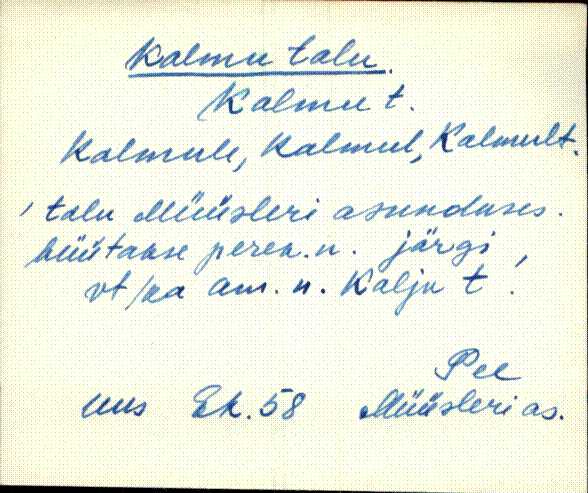 Kalmu talu.
Kalmu t.
Kalmule, Kalmul, Kalmult.
, talu Müüsleri asunduses.
hüütakse peren. n. järgi,
vt ka am. n. Kalju t.
Pee
uus Ek. 58 Müüsleri as.